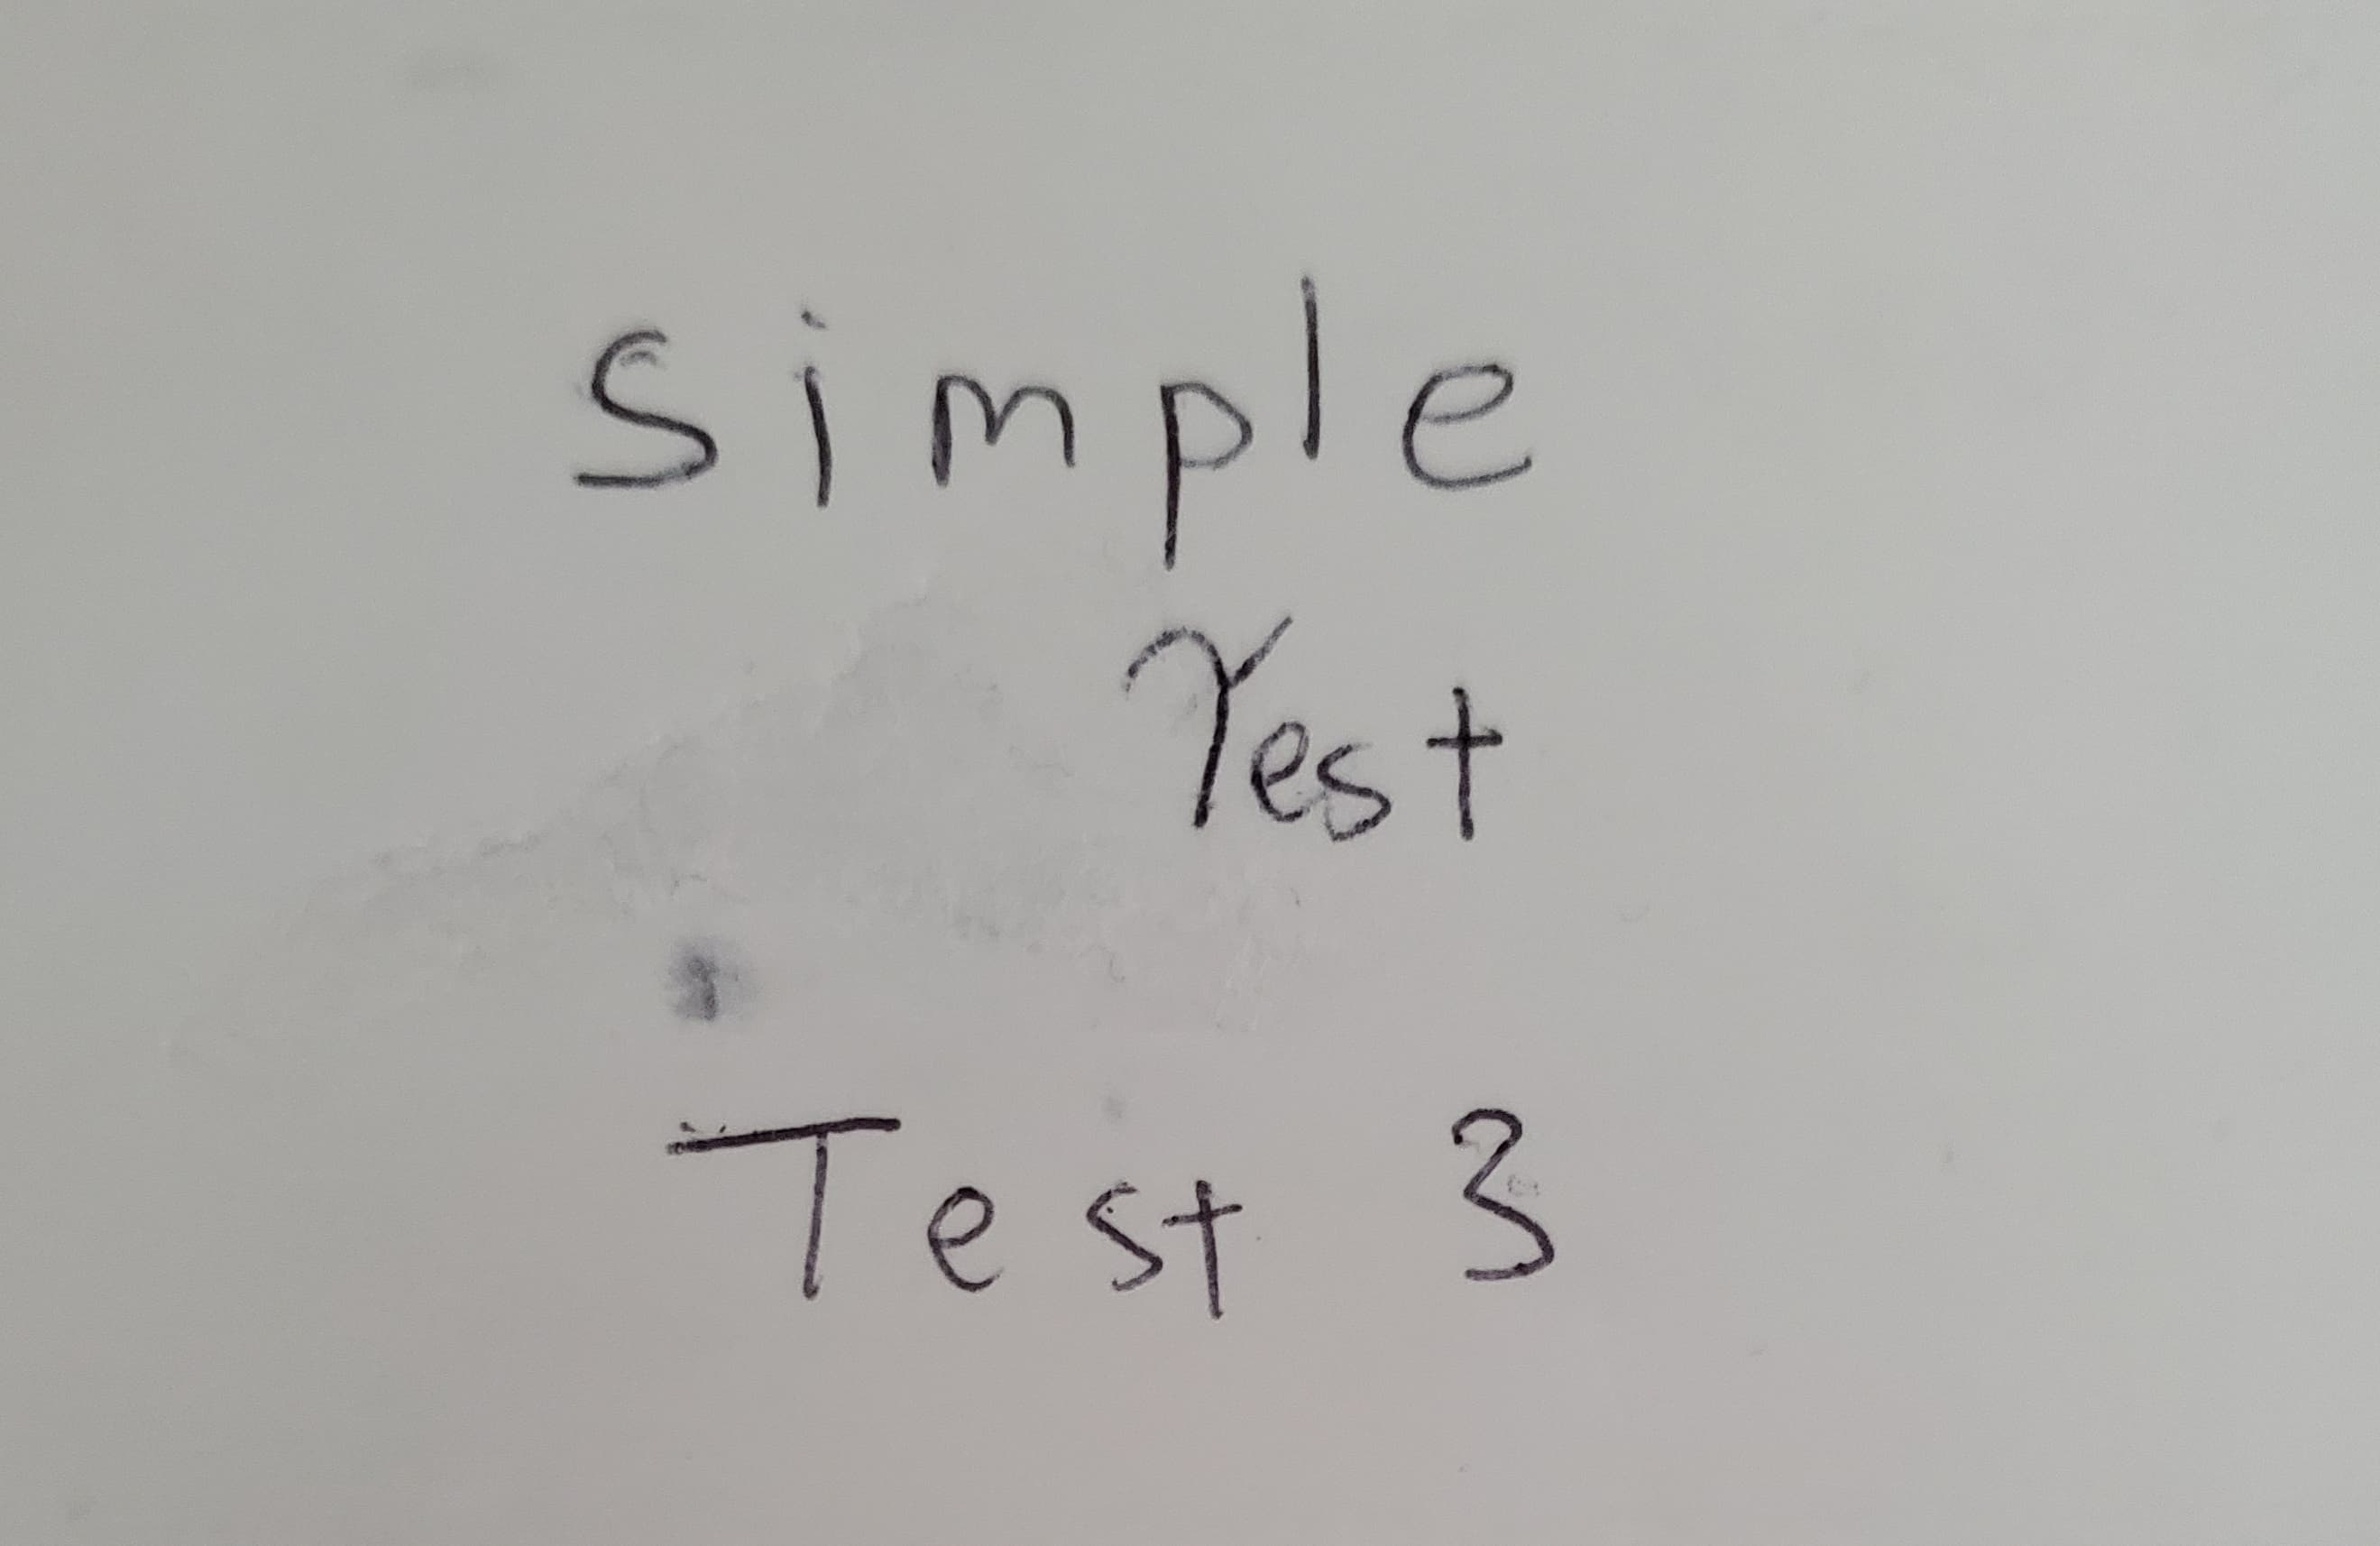 Simple
Test
Test 3